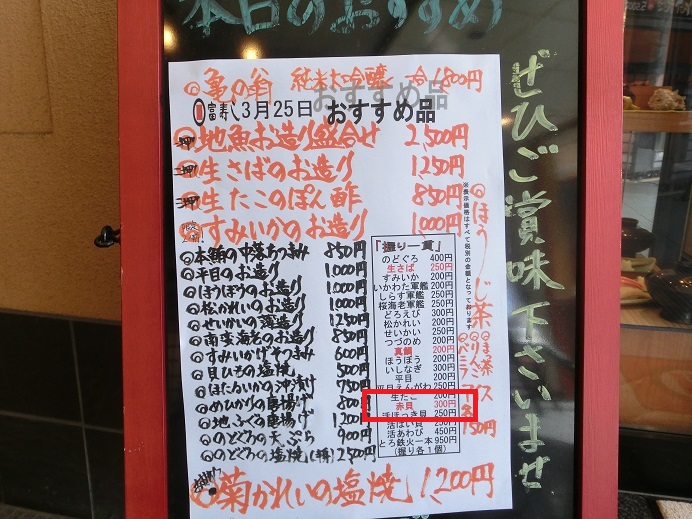 本日のおすすめ
ぜひご賞味下さいませ
亀の翁 純米大吟醸 一合1,800円
富寿し 3月25日 おすすめ品
地魚お造り盛合せ 2,500円
生さばのお造り 1,250円
生たこのぽん酢 850円
すみいかのお造り 1,000円
本鮪の中落ちつまみ 850円
平目のお造り 1,000円
ほうぼうのお造り 1,000円
松かれいのお造り 1,000円
せいかいの薄造り 1,250円
南蛮海老のお造り 850円
すみいかげそつまみ 600円
貝ひもの塩焼 500円
ほたるいかの沖漬け 750円
めひかりの唐揚げ 800円
地ふぐの唐揚げ 1,200円
のどぐろの天ぷら 900円
のどぐろの塩焼(特) 2,500円
菊かれいの塩焼 1,200円
『握り一貫』
のどぐろ 400円
生さば 250円
すみいか 200円
いかわた軍艦 200円
しらす軍艦 250円
桜海老軍艦 250円
どろえび 300円
松かれい 200円
せいかい 250円
つづのめ 200円
真鯛 200円
ほうぼう 200円
いしなぎ 300円
平目 200円
平目えんがわ 250円
生たこ 200円
赤貝 300円
活ほっき貝 250円
活ばい貝 250円
活あわび 450円
とろ鉄火一本 950円
(握り各1個)
※表示価格はすべて税別の金額となっております
ほうじ茶アイス
まっ茶
バニラ
各150円